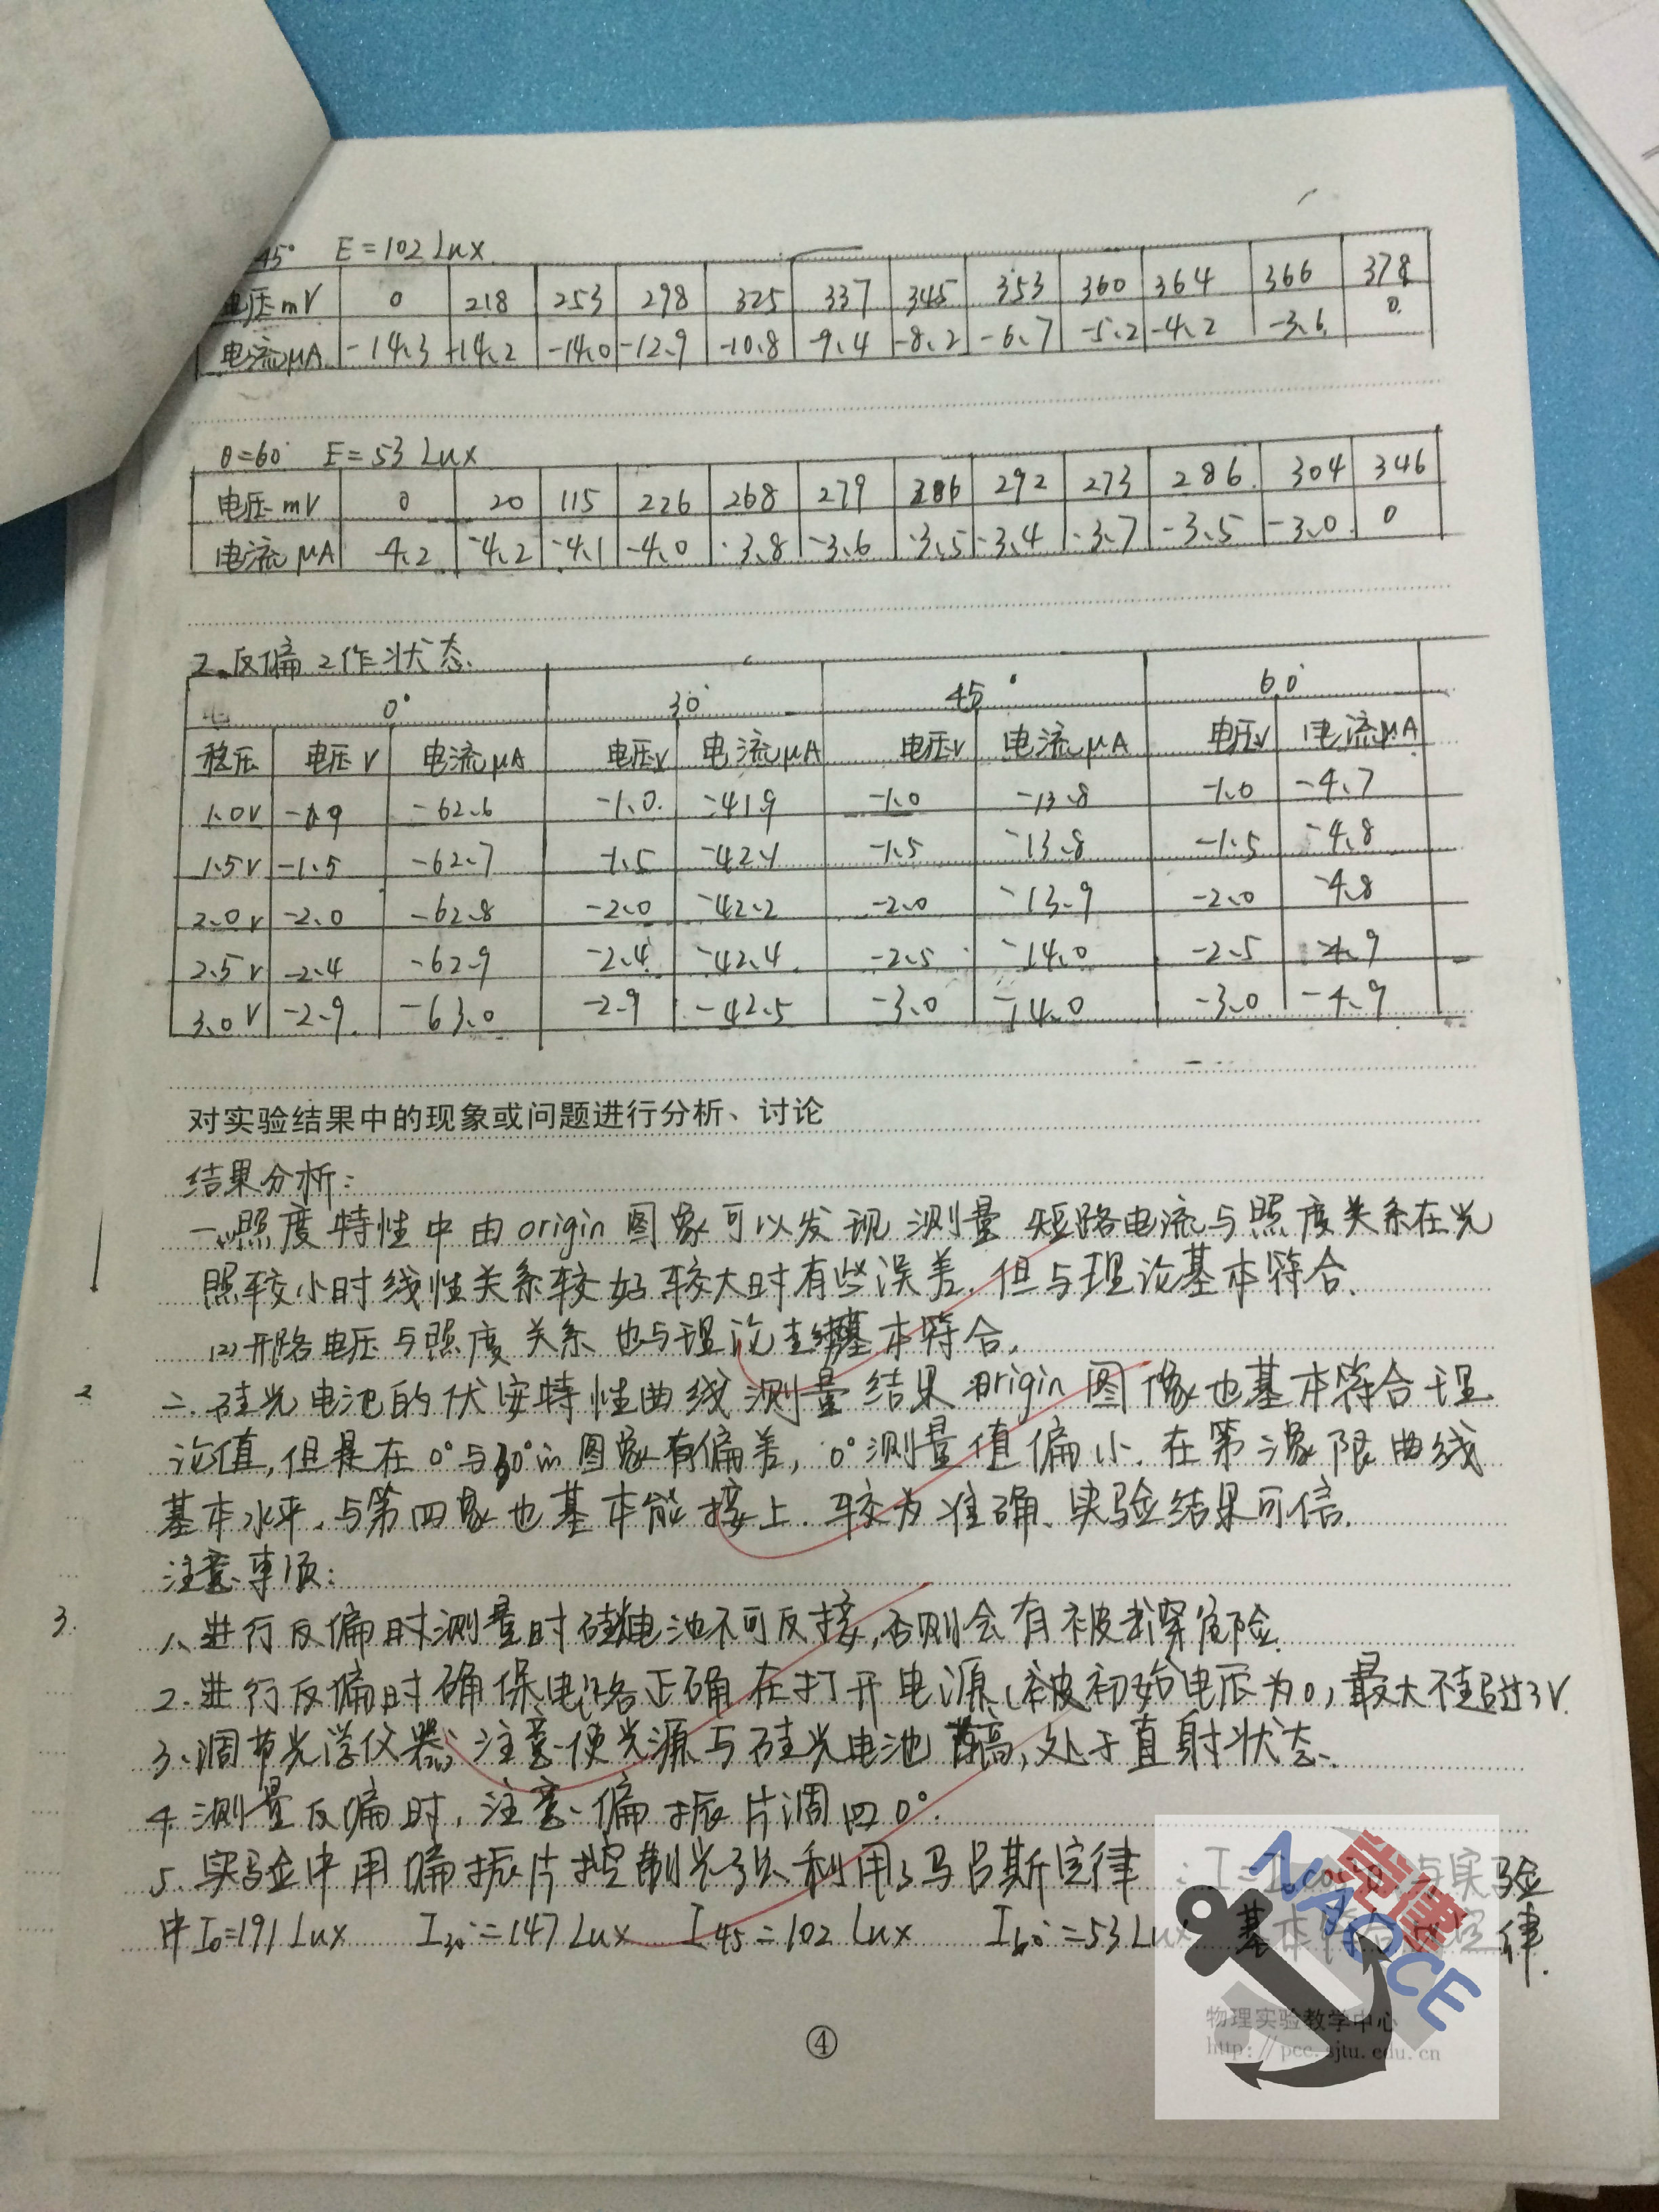 45° E=102 Lux
电压mV 0 218 253 298 325 337 345 353 360 364 366 378
电流μA -14.3 -14.2 -14.0 -12.9 -10.8 -9.4 -8.2 -6.7 -5.2 -4.2 -3.6 0
θ=60° E=53 Lux
电压mV 0 20 115 226 268 279 286 292 273 286 304 346
电流μA -4.2 -4.2 -4.1 -4.0 -3.8 -3.6 -3.5 -3.4 -3.7 -3.5 -3.0 0
2.反偏工作状态
0° 30° 45° 60°
稳压 电压V 电流μA 电压V 电流μA 电压V 电流μA 电压V 电流μA
1.0V -62.6 -1.0 -41.9 -1.0 -13.8 -1.0 -4.7
1.5V -1.5 -62.7 -1.5 -42.1 -1.5 -13.8 -1.5 -4.8
2.0V -2.0 -62.8 -2.0 -42.2 -2.0 -13.9 -2.0 -4.8
2.5V -2.4 -62.9 -2.4 -42.4 -2.5 -14.0 -2.5 -4.9
3.0V -2.9 -63.0 -2.9 -42.5 -3.0 -14.0 -3.0 -4.9
对实验结果中的现象或问题进行分析、讨论
结果分析:
一.照度特性中由origin图象可以发现测量短路电流与照度关系在光
照较小时线性关系较好较大时有些误差,但与理论基本符合.
(2)开路电压与照度关系也与理论基本符合.
二.硅光电池的伏安特性曲线测量结果origin图像也基本符合理
论值,但是在0°与30°的图象有偏差,0°测量值偏小.在第三象限曲线
基本水平,与第四象也基本能接上.较为准确.实验结果可信.
注意事项:
1.进行反偏时测量时硅电池不可反接,否则会有被击穿危险.
2.进行反偏时确保电路正确在打开电源,初始电压为0,最大不超过3V.
3.调节光学仪器,注意使光源与硅光电池等高,处于直射状态.
4.测量反偏时,注意偏振片调回0°.
5.实验中用偏振片控制光强利用了马吕斯定律:I=I₀cos²θ,与实验
中I₀=191Lux I₃₀°=147Lux I₄₅=102Lux I₆₀°=53Lux 基本符合 定律.
2
3.
④
物理实验教学中心
http://pcc.sjtu.edu.cn
NAOCE